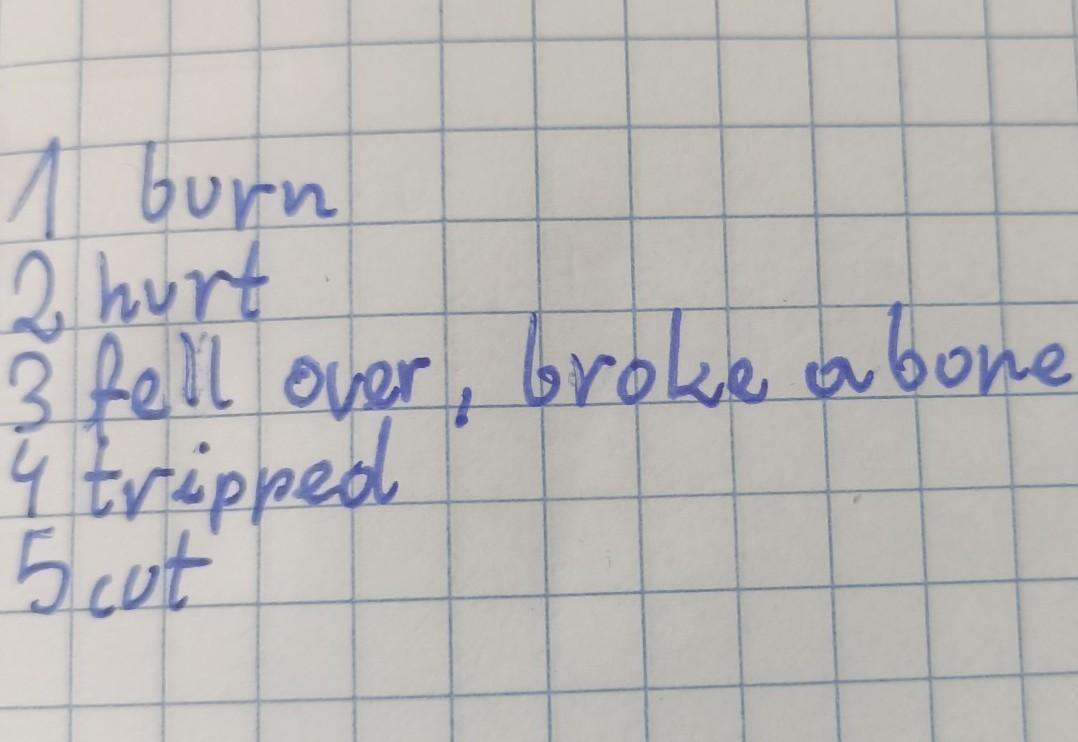 1 burn
2 hurt
3 fell over, broke a bone
4 tripped
5 cut